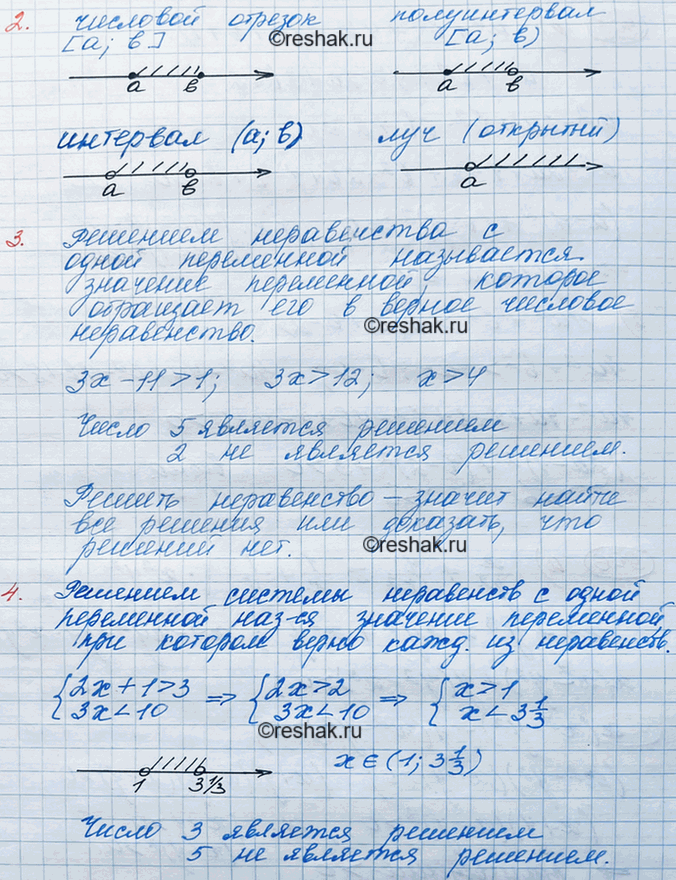 2. числовой отрезок полуинтервал
[a; в] [a; в)
©reshak.ru
a в a в
интервал (a; в) луч (открытый)
a в a
3. Решением неравенства с
одной переменной называется
значение переменной, которое
обращает его в верное числовое
неравенство.
©reshak.ru
3x - 11 > 1; 3x > 12; x > 4
Число 5 является решением
2 не является решением.
Решить неравенство – значит найти
все решения или доказать, что
решений нет.
©reshak.ru
4. Решением системы неравенств с одной
переменной наз-ся значение переменной,
при котором верно кажд. из неравенств.
{2x + 1 > 3 ⇒ {2x > 2 ⇒ {x > 1
3x < 10 3x < 10 x < 3 1/3
©reshak.ru
x ∈ (1; 3 1/3)
1 3 1/3
Число 3 является решением
5 не является решением.